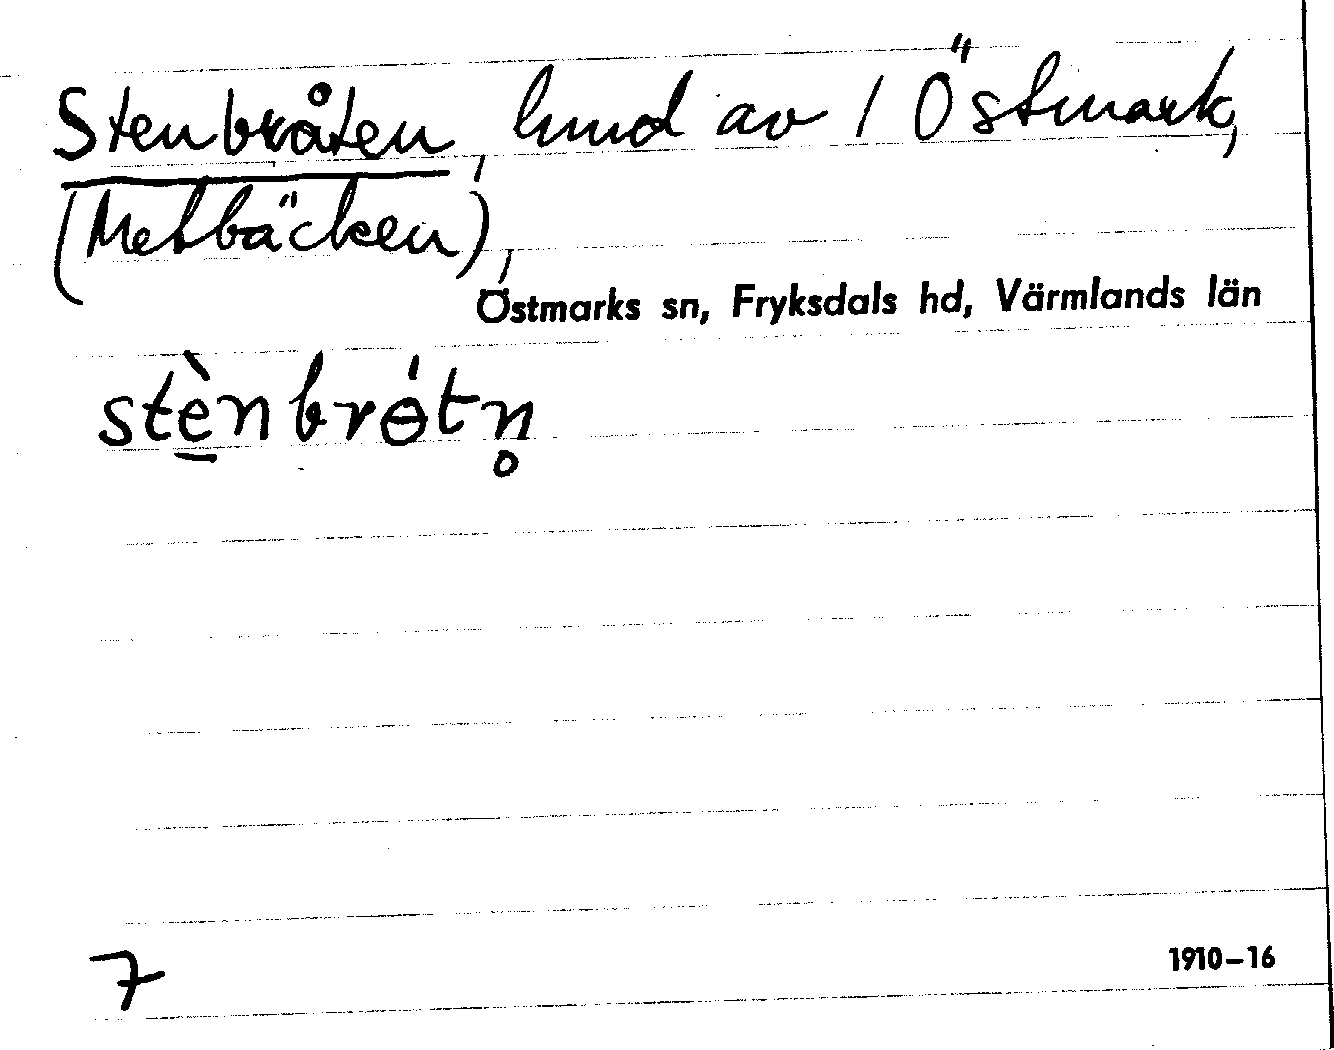 Stenbråten, hmd av 1 Östmark,
(Metbäcken),
Östmarks sn, Fryksdals hd, Värmlands län
stè̱nbrɵ́tn̥
7
1910–16